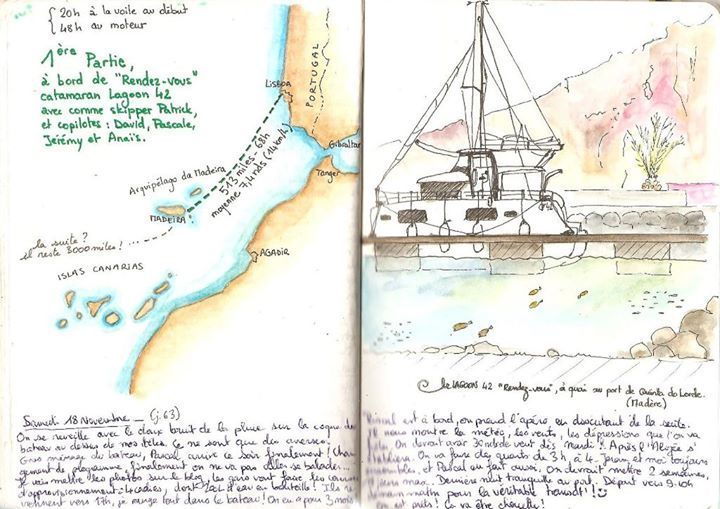 20h à la voile au début
48h au moteur
1ère Partie,
à bord de "Rendez-vous"
catamaran Lagoon 42
avec comme skipper Patrick,
et copilotes : David, Pascale,
Jérémy et Anaïs.
PORTUGAL
LISBOA
Gibraltar
Tanger
513 miles - 68h
moyenne 7,4 nds (14km/h)
Arquipélago da Madeira
MADEIRA
la suite ?
il reste 3000 miles ! ...
AGADIR
ISLAS CANARIAS
Samedi 18 Novembre (j. 63)
On se réveille avec le doux bruit de la pluie sur la coque du
bateau au dessus de nos têtes. Ce ne sont que des averses.
Gros ménage du bateau, Pascal arrive ce soir finalement ! Chan
gement de programme, finalement on ne va pas aller se balader...
Je vais mettre les photos sur le blog, les gars vont faire les courses
d'approvisionnement : 4 cadies, dont 220L d'eau en bouteille ! Ils re
viennent vers 17h, je range tout dans le bateau ! On en a pour 3 mois
Le LAGOON 42 "Rendez-vous", à quai au port de Quinta do Lorde.
(Madère)
est à bord, on prend l'apéro en discutant de la suite.
nous montre la météo, les vents, les dépressions que l'on va
On devrait avoir 30 nds de vent dès mardi ! Après l'Alizée s'
On va faire des quarts de 3h, à 4. Jérem et moi toujours
et Pascal en fait aussi. On devrait mettre 2 semaines,
jours max. Dernière nuit tranquille au port. Départ vers 9-10h
demain matin pour la véritable transat' !
On est prêts ! Ça va être chouette !